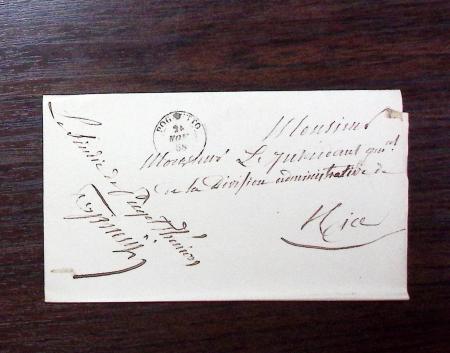 POGETTO
24
NOV
58
Monsieur
Monsieur L'Intendant gnāl
de la Division administrative de
Nice
Le Sindic de Puget Théniers